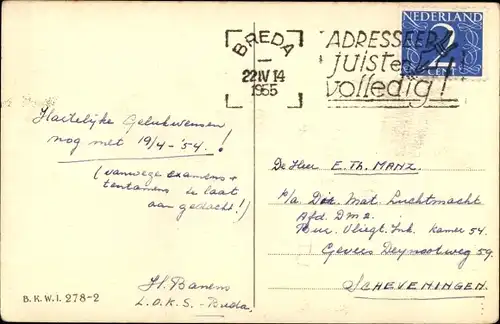 BREDA
22 IV 14
1955
ADRESSEER
juist en
volledig!
NEDERLAND
2
CENT
Hartelijke Gelukwensen
nog met 19/4-'54.!
(vanwege examens +
tentamens te laat
aan gedacht!)
H. Banens
L.O.K.S. - Breda.
B.K.W.I. 278-2
De Heer E. Th. MANZ.
p/a Dir. Mat. Luchtmacht
Afd. DM2.
Bur. Vliegt. Ink. kamer 54.
Gevers Deynootweg 59.
SCHEVENINGEN.